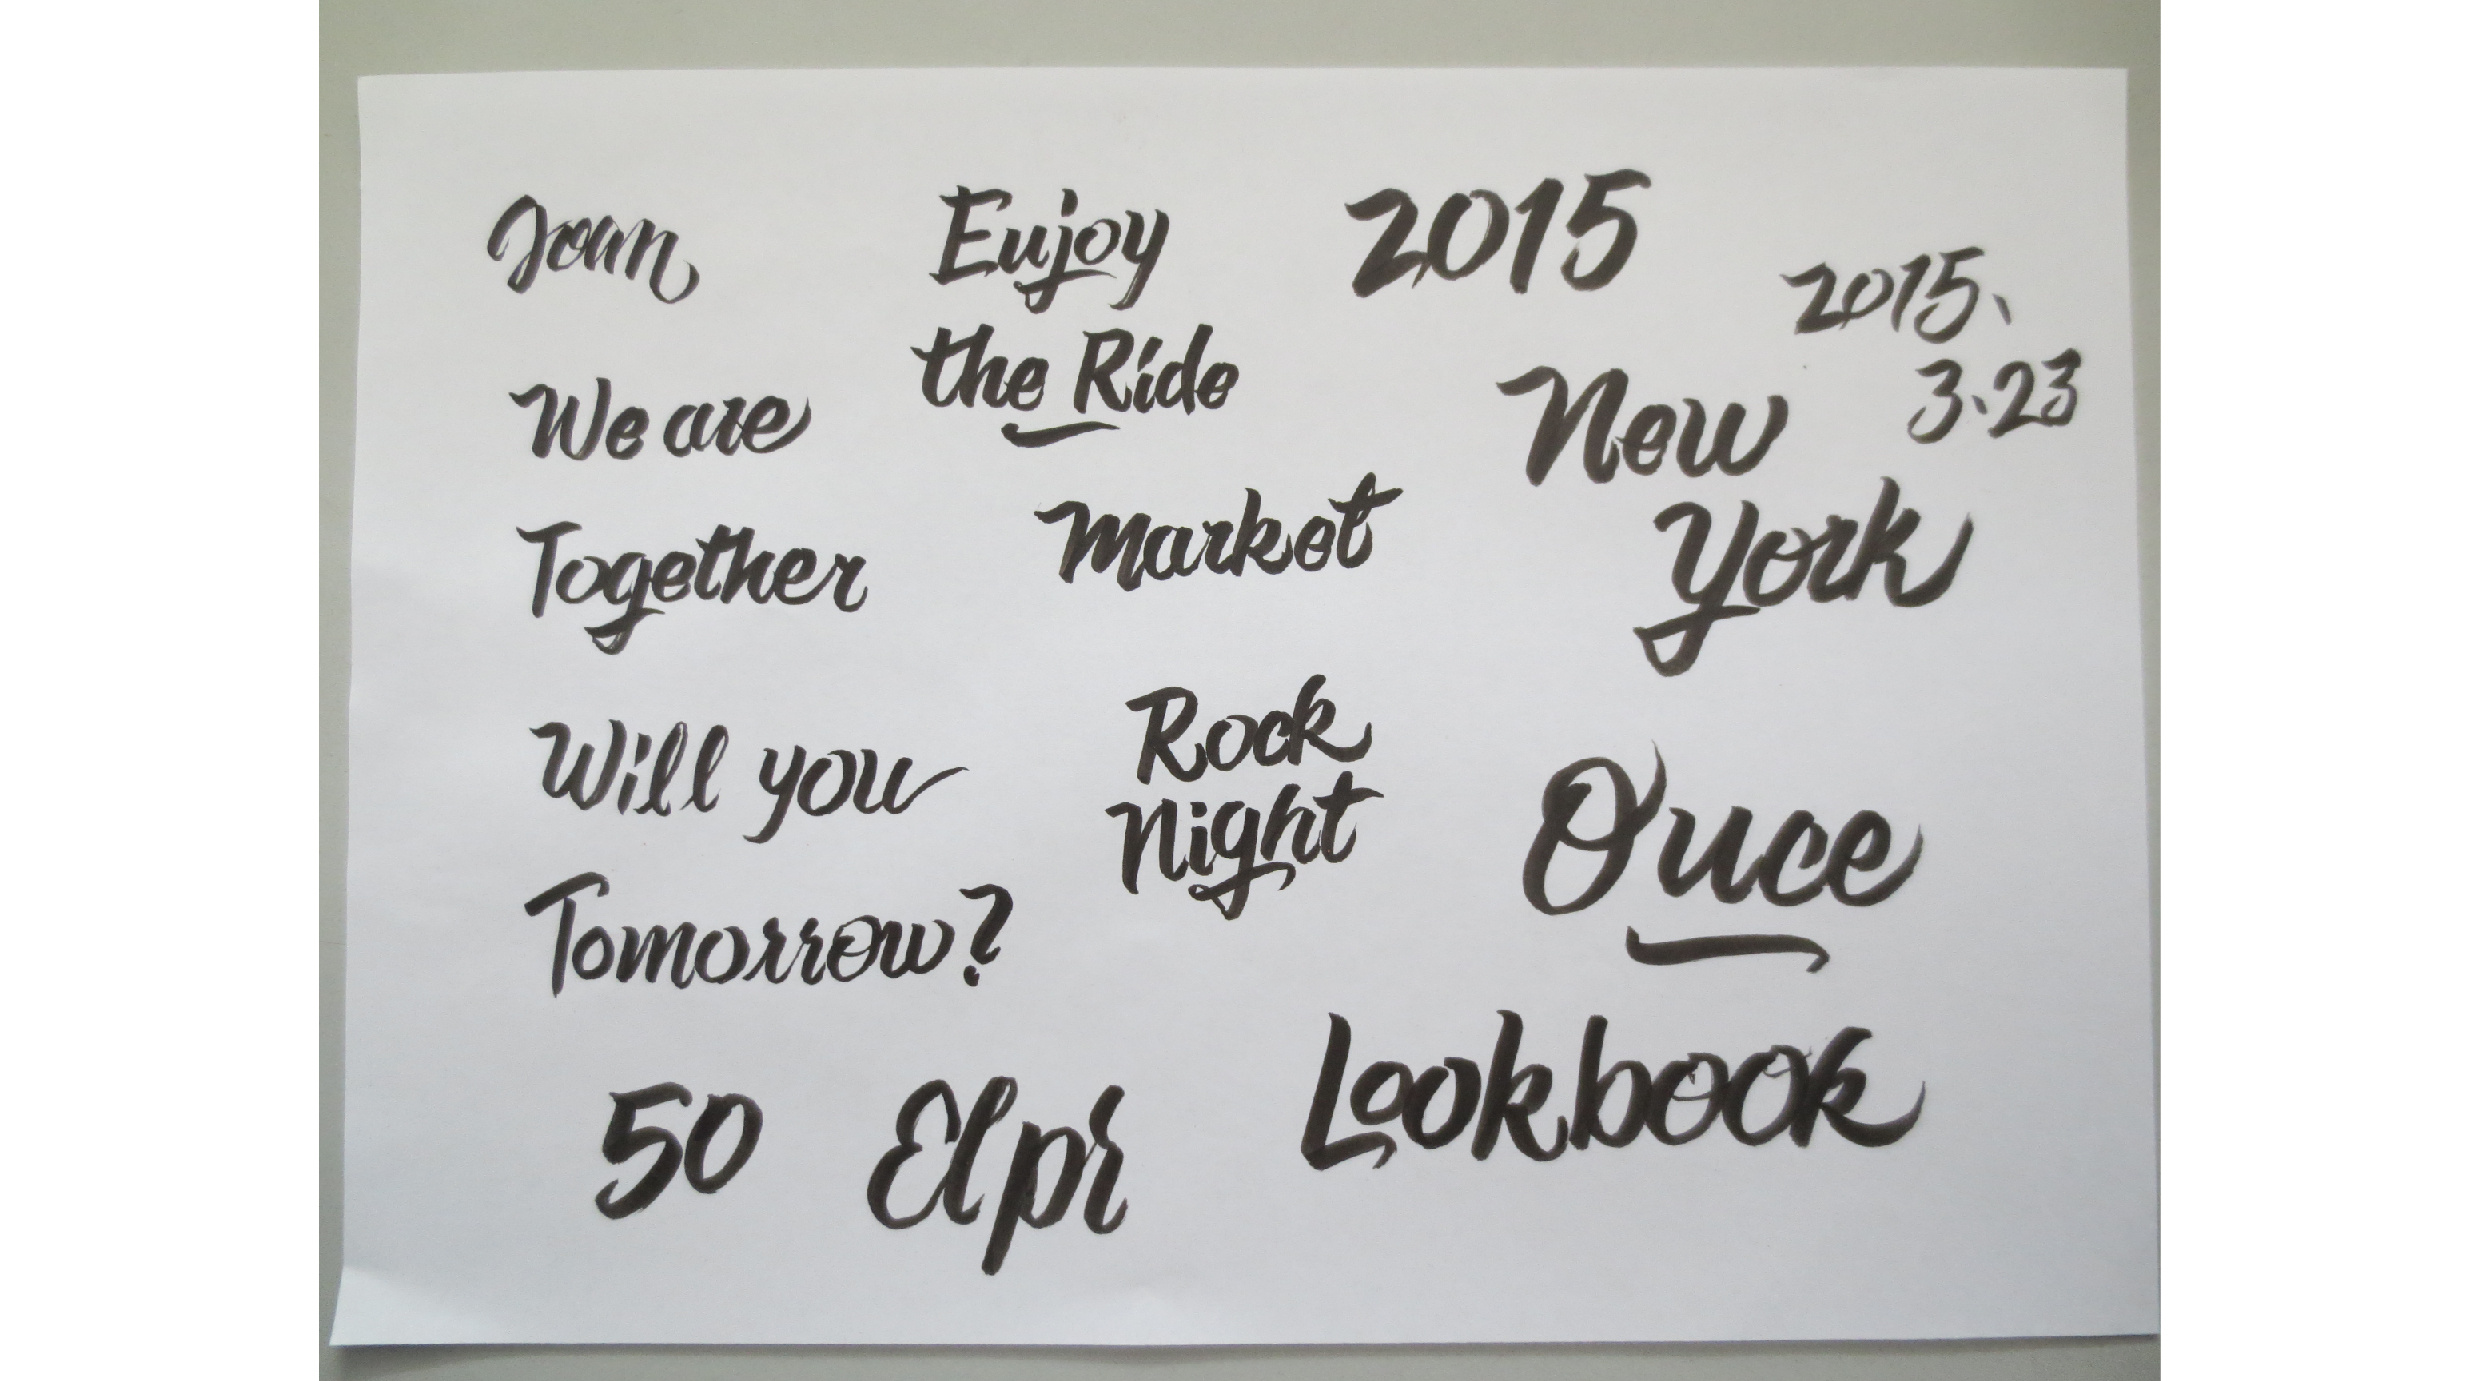 Joan
Enjoy
the Ride
2015
2015、
3、23
We are
Together
Market
New
York
Will you
Tomorrow?
Rock
Night
Once
50
Elpr
Lookbook